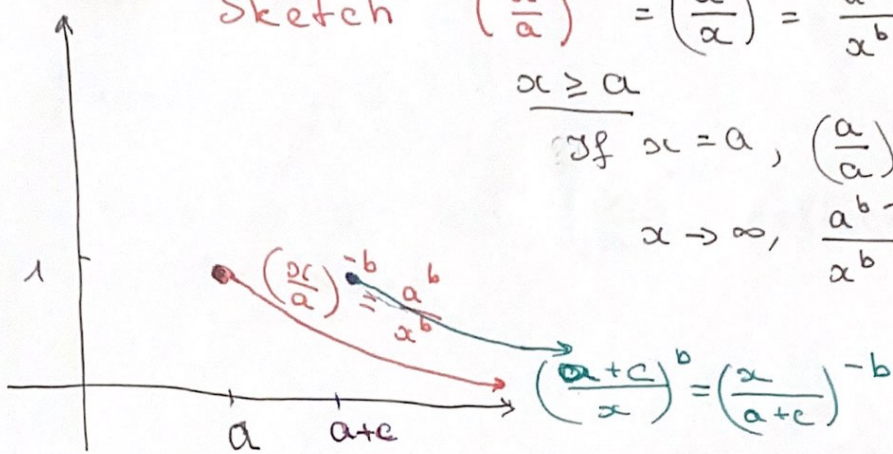 Sketch (x/a) = (a/x) = /x^b
x ≥ a
If x = a, (a/a)
x → ∞, a^b/x^b
1
(x/a)^-b = a^b/x^b
((a+c)/x)^b = (x/(a+c))^-b
a a+c